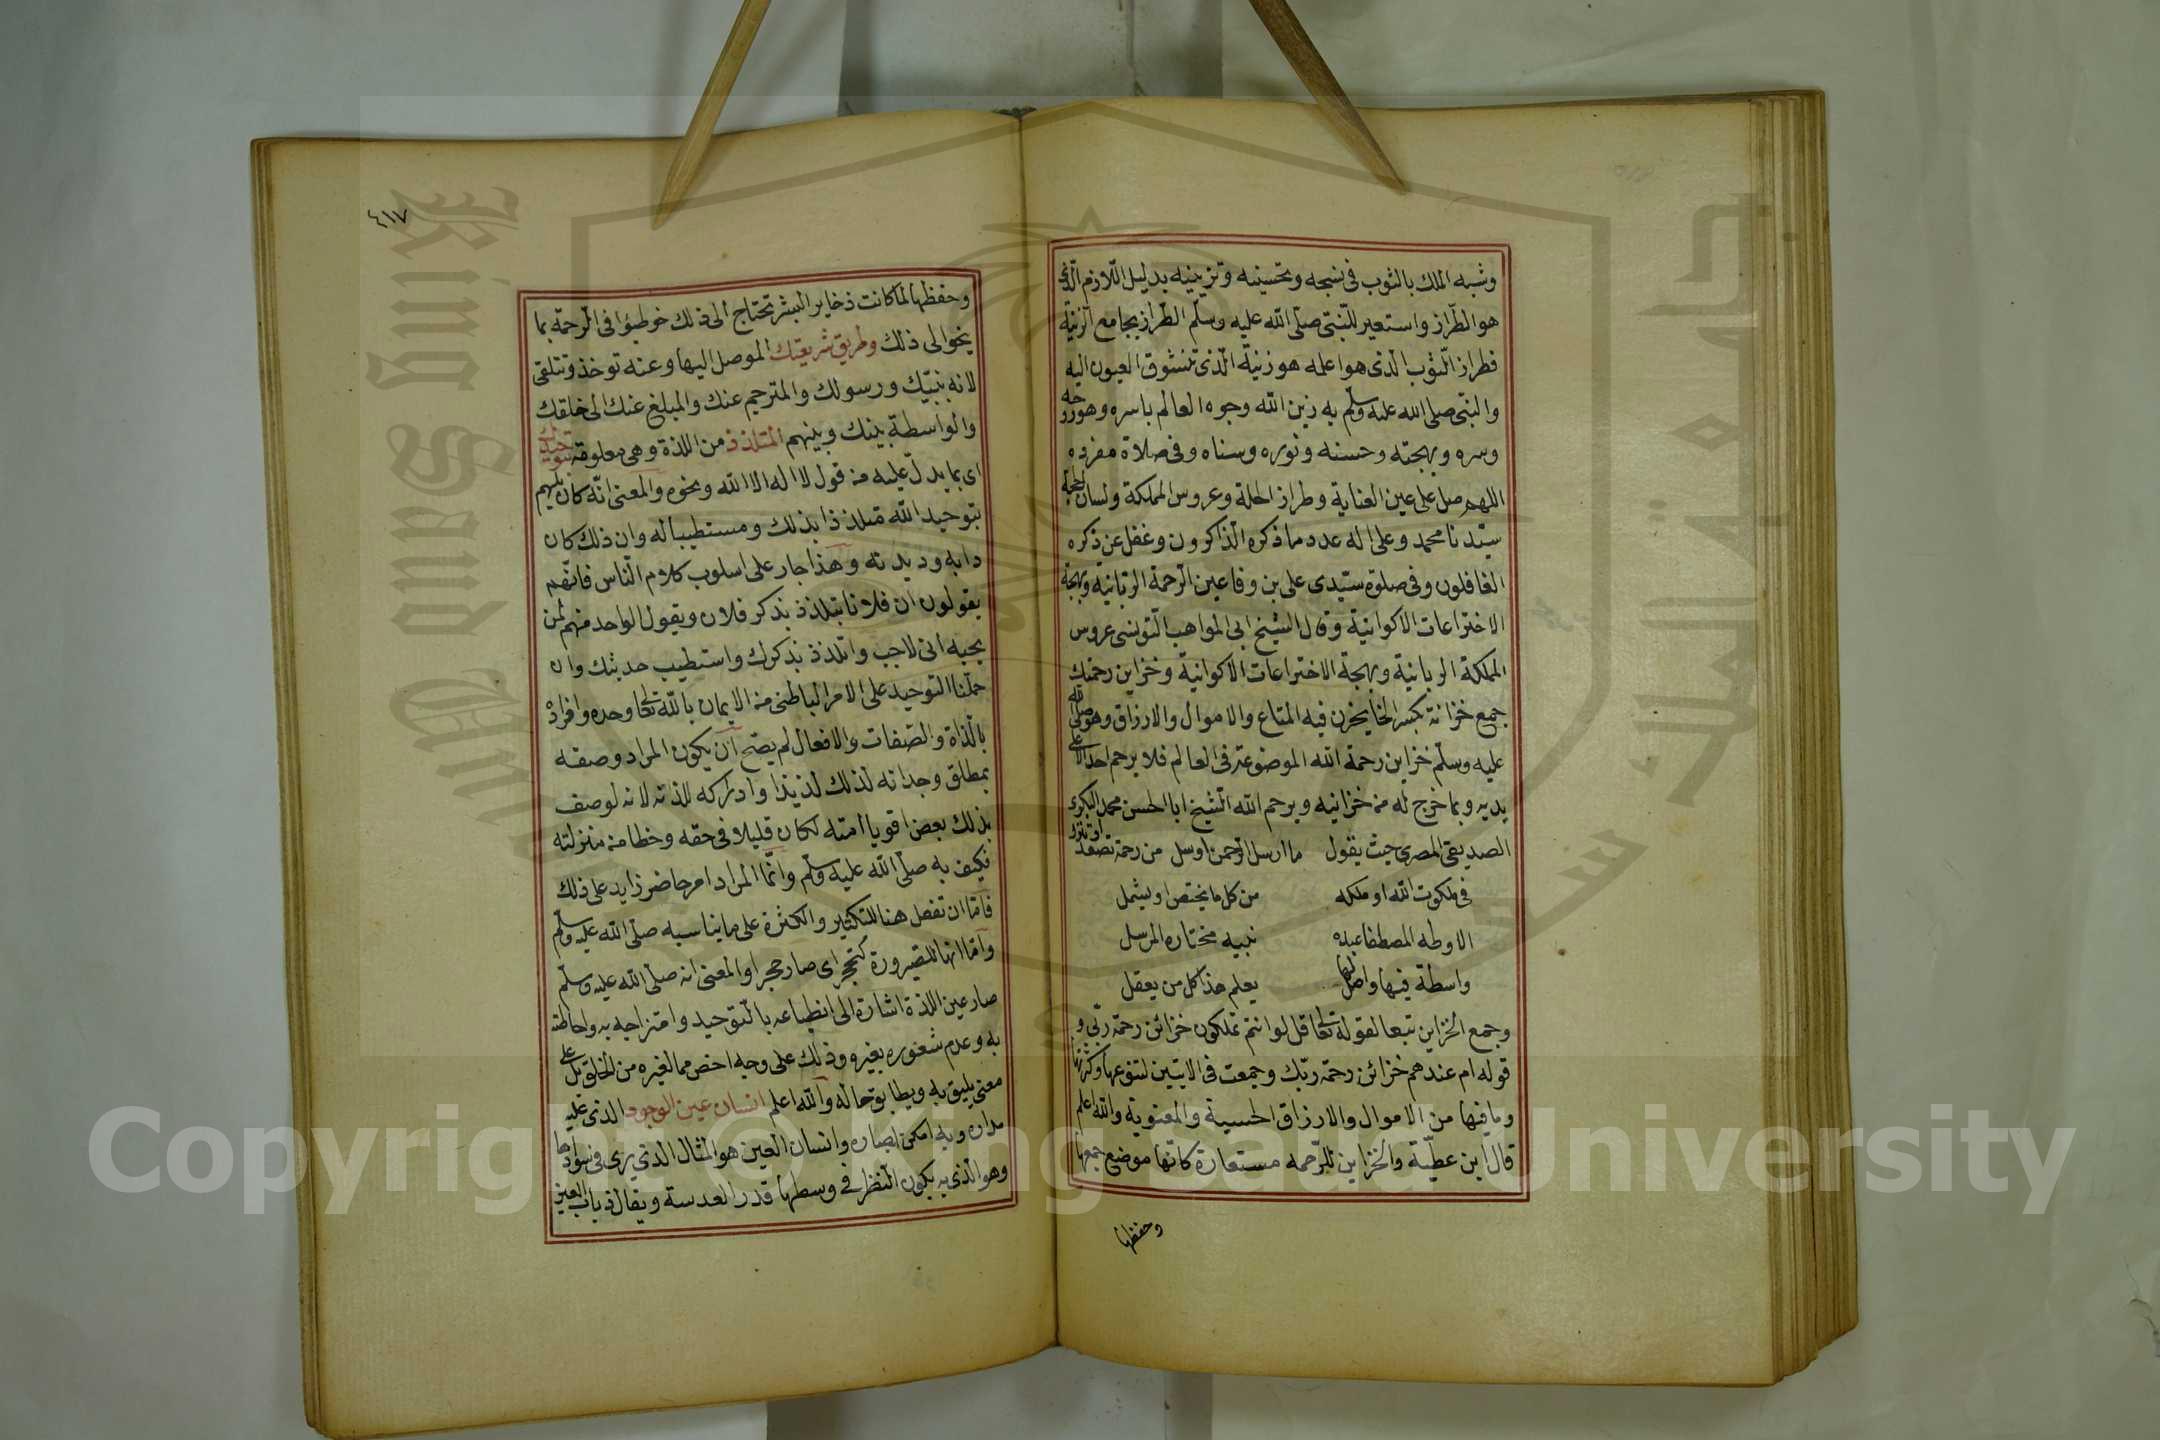 وشبه الملك بالثوب فى نسجه وتحسينه وتزيينه بدليل اللازم الذى
هو الطراز واستعير للنبّى صلّى الله عليه وسلّم الطراز بجامع الزينة
فطراز الثوب الذى هو اعلمه هو زنيّة الذى تنشوق العيون اليه
والنبى صلى الله عليه وسلّم به زين الله وجوه العالم باسره وهو روحه
وسره وبهجته وحسنه ونوره وسناه وفى صلاة مفرده
اللهم صل على عين العناية وطراز الحلة وعروس المملكة ولسان الحجة
سيّدنا محمد وعلى اله عدد ما ذكره الذاكرون وغفل عن ذكره
الغافلون وفى صلوة سيّدى على بن وفا عين الرحمة الربّانيّة وبهجة
الاختراعات الاكوانية وقال الشيخ ابى المواهب التونسى عروس
المملكة الربانية وبهجة الاختراعات الاكوانيّة وخزاين رحمتك
جمع خزانة بكسر الخا يخزن فيه المتاع والاموال والارزاق وهو صلى الله
عليه وسلّم خزاين رحمة الله الموضوعة فى العالم فلا يرحم احد الا على
يديه وبما خرج له من خزانيه ويرحم الله الشيخ ابا الحسن محمد البكرى
الصديقى المصرى حيث يقول ما ارسل الرحمن او يرسل من رحمة تصعد او تنزل
فى ملكوت الله او ملكه من كل ما يختص او يشمل
الا وطه المصطفا عبده نبيه مختاره المرسل
واسطة فيها واصل لها يعلم هذا كل من يعقل
وجمع الخزاين تبعا لقوله تعا قل لو انتم تملكون خزائن رحمة ربّى و
قوله ام عندهم خزائن رحمة ربّك وجمعت فى الايتين لتنوعها وكثرتها
وما فيها من الاموال والارزاق الحسية والمعنوية والله اعلم
قال ابن عطيّة والخزاين للرّحمه مستعارة كانّها موضع جمعها
وحفظها
٤١٧
وحفظها لما كانت ذخاير البشر تحتاج الى ذلك خوطبوا فى الرحمة بما
ينحوا لى ذلك وطريق شريعتك الموصل اليها وعنه توخذ وتتلقى
لانه نبيّك ورسولك والمترجم عنك والمبلغ عنك الى خلقك
والواسطة بينك وبينهم المتلذذ من اللذة وهى معلومة بتوحيدك
اى بما يدلّ عليه من قول لا اله الا الله ونحوه والمعنى انّه كان يلهم
بتوحيد الله متلذذا بذلك ومستطيبا له وان ذلك كان
دابه وديدنه وهذا جار على اسلوب كلام الناس فانّهم
يقولون ان فلانا يتلذذ بذكر فلان ويقول الواحد منهم لمن
يحبه انى لاحب واتلذذ بذكرك واستطيب حديثك وان
حملنا التوحيد على الامر الباطنى من الايمان بالله تعا وحده وافراده
بالذاة والصّفات والافعال لم يصّح ان يكون المراد وصفه
بمطلق وجدانه لذلك لذيذا وادراكه للذته لانه لو وصف
بذلك بعض اقويا امته لكان قليلا فى حقه وخطا من منزلته
فكيف به صلّى الله عليه وسلّم وانّما المراد امر حاضر زايد على ذلك
فامّا ان تفعل هنا للتكثير والكثرة على ما يناسبه صلّى الله عليه وسلّم
وامّا انها للصّيرورة كتحجر اى صار حجرا والمعنى انه صلّى الله عليه وسلّم
صار عين اللذة اشارة الى انطباعه بالتوحيد وامتزاجه به واحاطته
به وعدم شعوره بغيره وذلك على وجه اخص مما لغيره من الخلق بل على
معنى يليق به ويطابق حاله والله اعلم انسان عين الوجود الذى عليه
مداره وبه امكن ابصاره وانسان العين هو المثال الذى يرى فى سوادها
وهو الذى به يكون النظر فى وسطها قدر العدسة ويقال ذباب العين